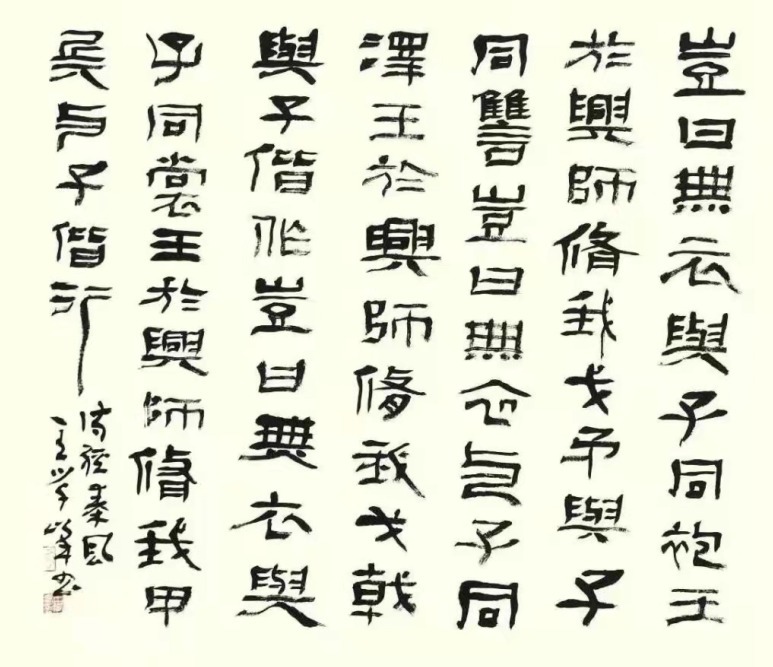 豈曰無衣與子同袍王
於興師脩我戈矛與子
同讐豈曰無衣与子同
澤王於興師脩我戈戟
與子偕作豈曰無衣與
子同裳王於興師脩我甲
兵与子偕行
诗經秦風
王学书